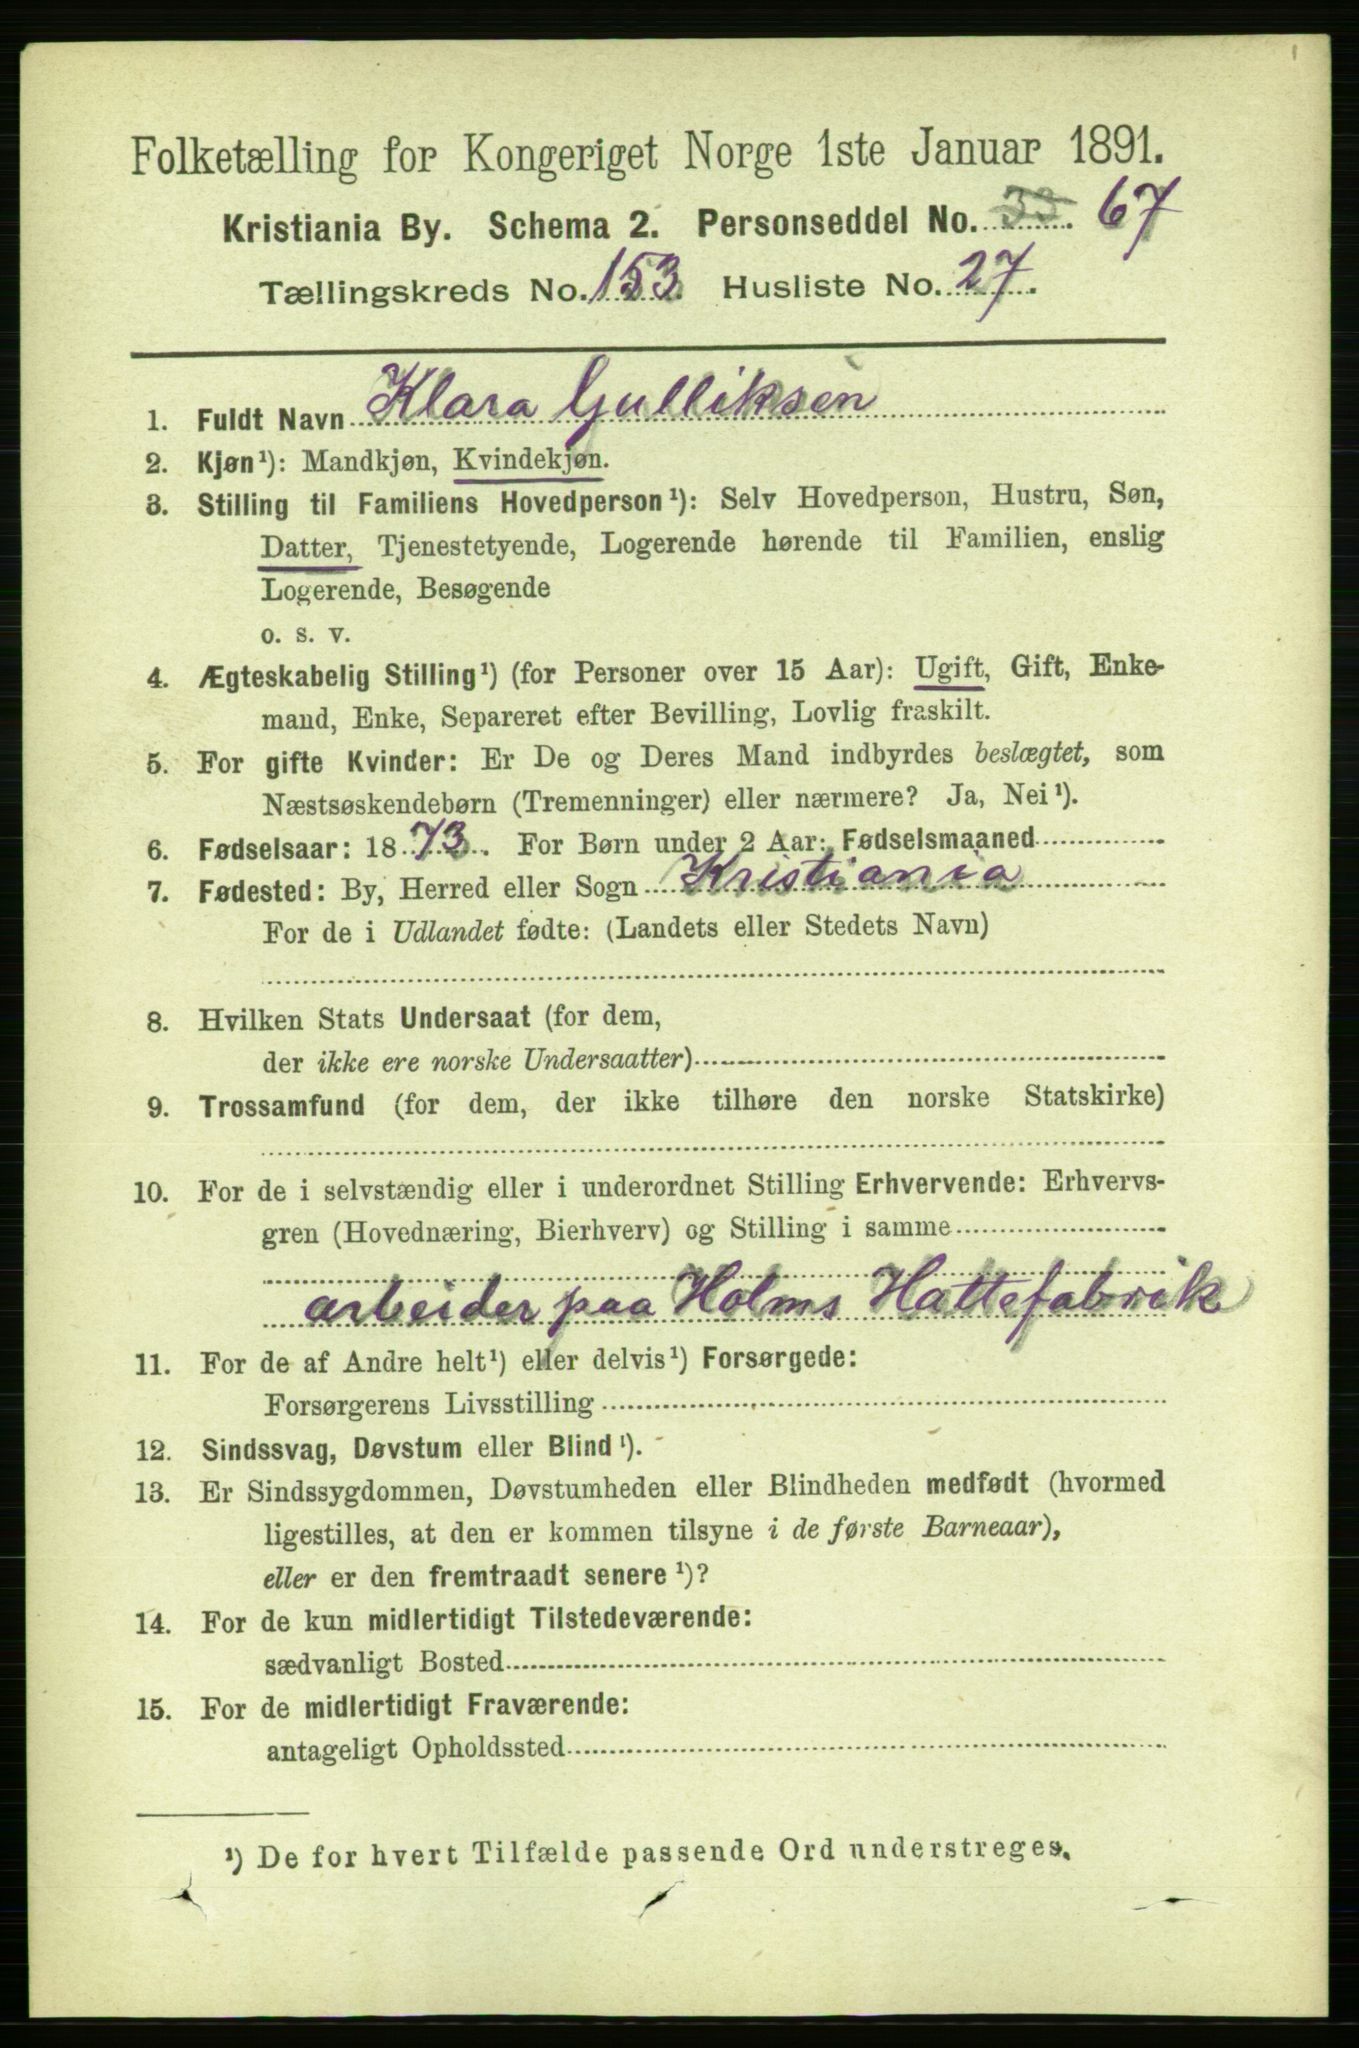 Folketælling for Kongeriget Norge 1ste Januar 1891.
Kristiania By. Schema 2. Personseddel No. 33. 67
Tællingskreds No. 153. Husliste No. 27.
1. Fuldt Navn Klara Gulliksen
2. Kjøn¹): Mandkjøn, Kvindekjøn.
3. Stilling til Familiens Hovedperson¹): Selv Hovedperson, Hustru, Søn,
Datter, Tjenestetyende, Logerende hørende til Familien, enslig
Logerende, Besøgende
o. s. v.
4. Ægteskabelig Stilling¹) (for Personer over 15 Aar): Ugift, Gift, Enke-
mand, Enke, Separeret efter Bevilling, Lovlig fraskilt.
5. For gifte Kvinder: Er De og Deres Mand indbyrdes beslægtet, som
Næstsøskendebørn (Tremenninger) eller nærmere? Ja, Nei¹).
6. Fødselsaar: 1873. For Børn under 2 Aar: Fødselsmaaned
7. Fødested: By, Herred eller Sogn Kristiania
For de i Udlandet fødte: (Landets eller Stedets Navn)
8. Hvilken Stats Undersaat (for dem,
der ikke ere norske Undersaatter)
9. Trossamfund (for dem, der ikke tilhøre den norske Statskirke)
10. For de i selvstændig eller i underordnet Stilling Erhvervende: Erhvervs-
gren (Hovednæring, Bierhverv) og Stilling i samme
arbeider paa Holms Hattefabrik
11. For de af Andre helt¹) eller delvis¹) Forsørgede:
Forsørgerens Livsstilling
12. Sindssvag, Døvstum eller Blind¹).
13. Er Sindssygdommen, Døvstumheden eller Blindheden medfødt (hvormed
ligestilles, at den er kommen tilsyne i de første Barneaar),
eller er den fremtraadt senere¹)?
14. For de kun midlertidigt Tilstedeværende:
sædvanligt Bosted
15. For de midlertidigt Fraværende:
antageligt Opholdssted
¹) De for hvert Tilfælde passende Ord understreges.